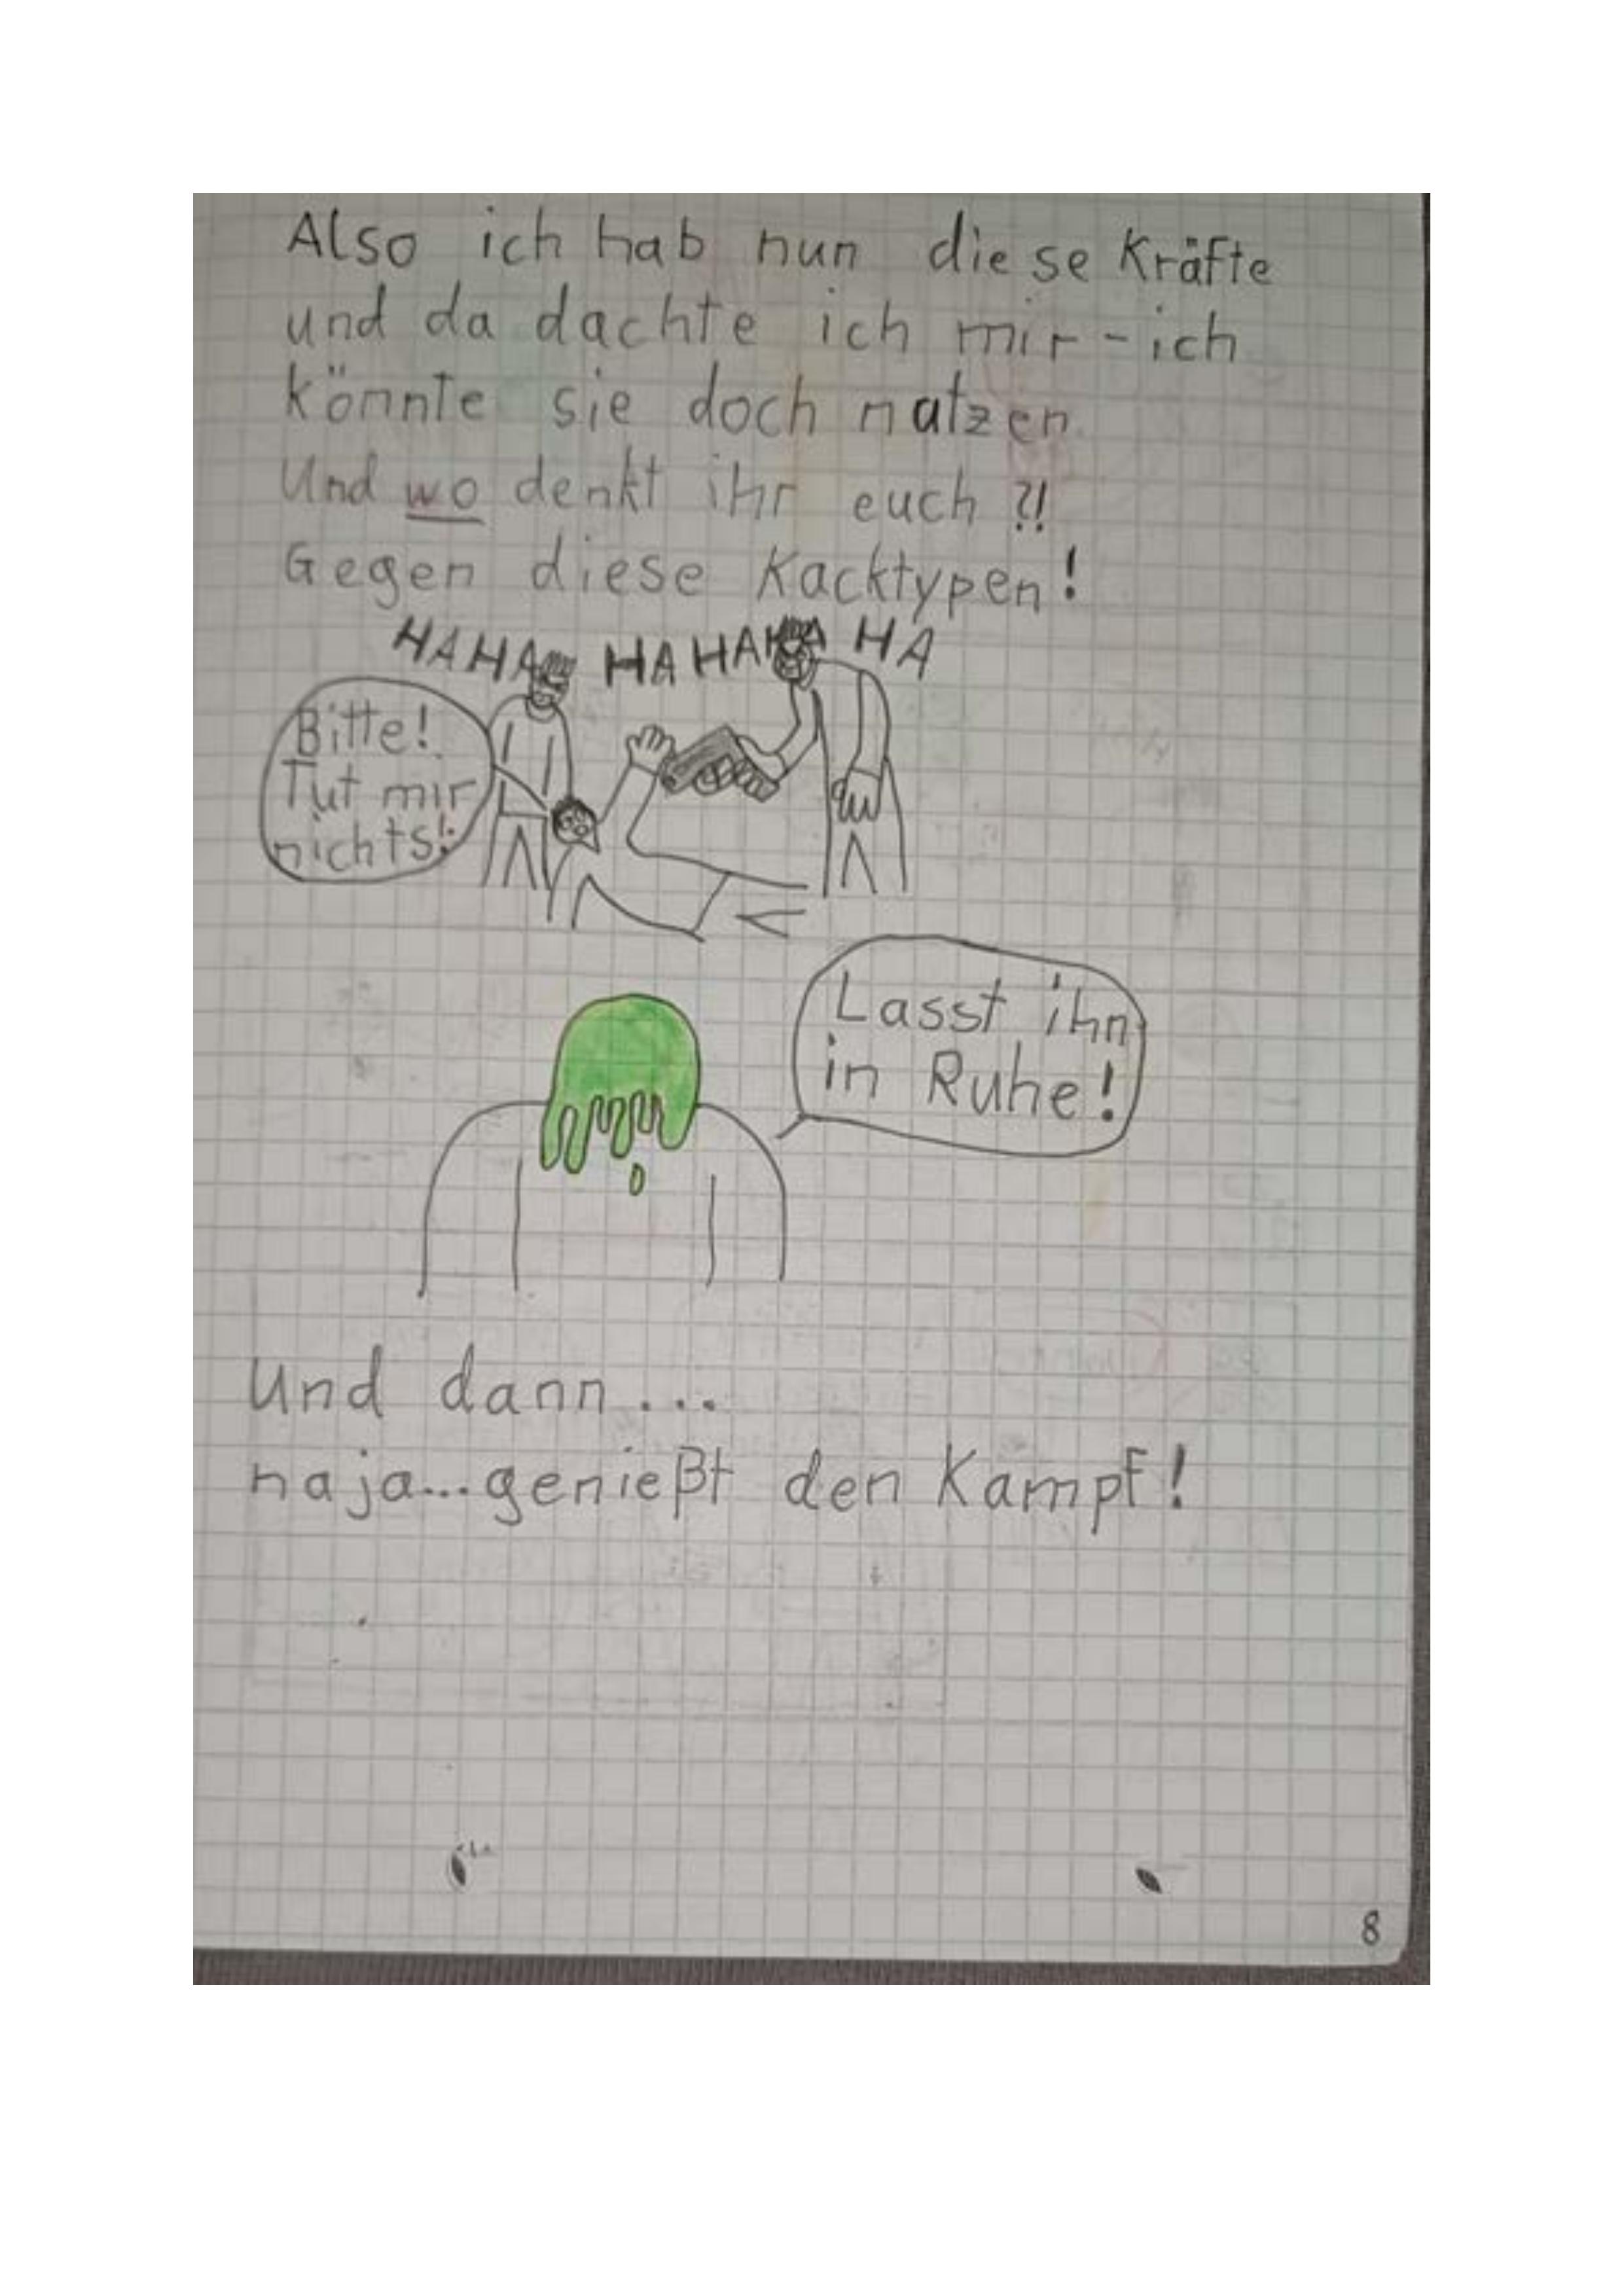 Also ich hab nun diese Kräfte
und da dachte ich mir - ich
könnte sie doch natzen.
Und wo denkt ihr euch ?!
Gegen diese Kacktypen!
HAHA HAHAHA HA
Bitte!
Tut mir
nichts!
Lasst ihn
in Ruhe!
Und dann...
naja...genießt den Kampf!
8